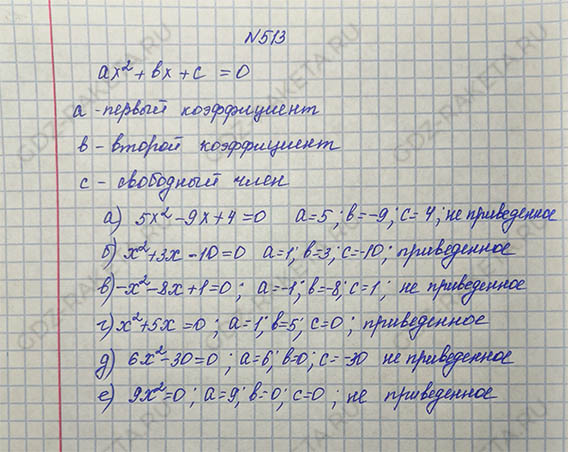 №513
ax² + bx + c = 0
a - первый коэффициент
b - второй коэффициент
c - свободный член
а) 5x² - 9x + 4 = 0 a = 5; b = -9; c = 4; не приведенное
б) x² + 3x - 10 = 0 a = 1; b = 3; c = -10; приведенное
в) -x² - 8x + 1 = 0; a = -1; b = -8; c = 1; не приведенное
г) x² + 5x = 0; a = 1; b = 5; c = 0; приведенное
д) 6x² - 30 = 0; a = 6; b = 0; c = -30 не приведенное
е) 9x² = 0; a = 9; b = 0; c = 0; не приведенное
GDZ-RAKETA.RU